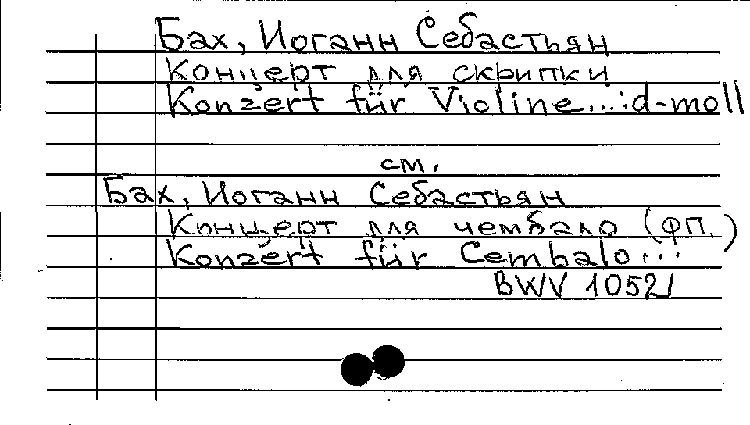 Бах, Иоганн Себастьян
Концерт для скрипки
Konzert für Violine...:d-moll
см.
Бах, Иоганн Себастьян
Концерт для чембало (фп.)
Konzert für Cembalo...
BWV 1052